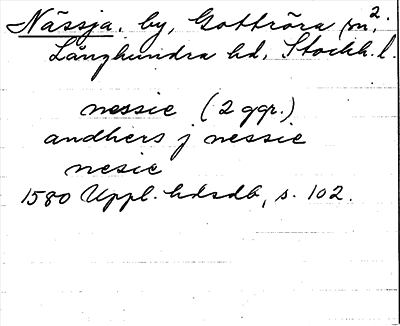 Nässja. by, Gottröra sn²,
Långhundra hd, Stockh. l.
nessie (2 ggr.)
andhers j nessie
nesie
1580 Uppl. hdsdb, s. 102.